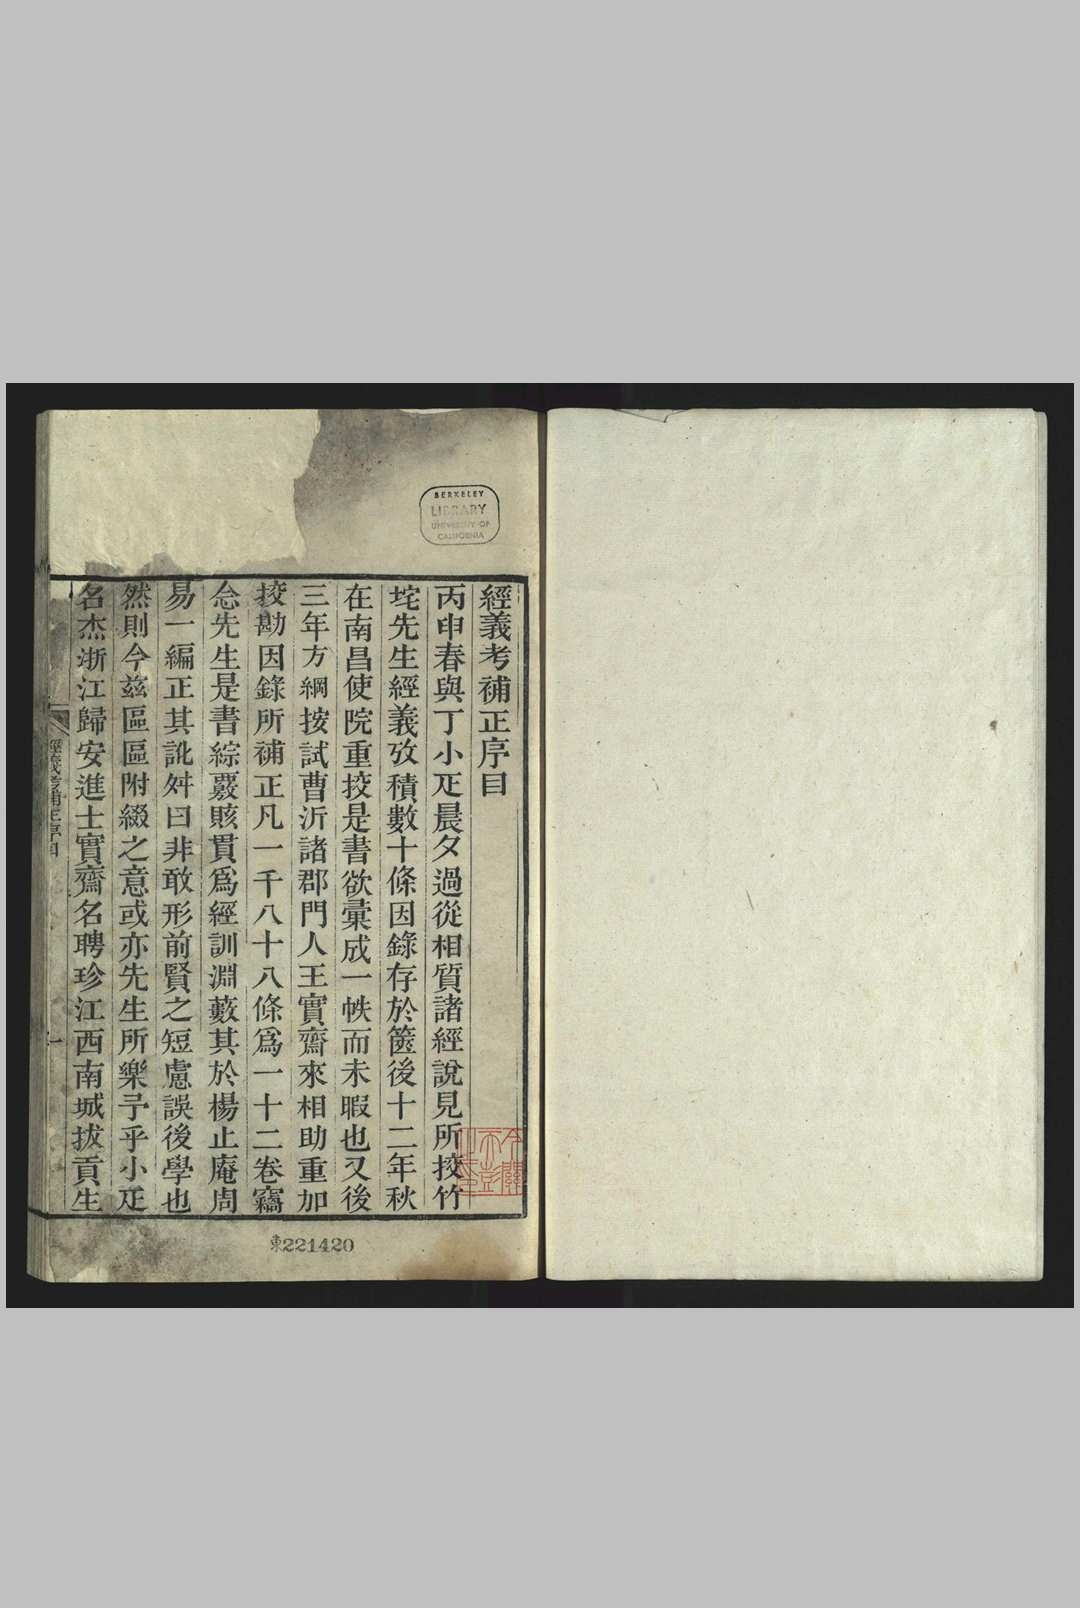 BERKELEY
LIBRARY
UNIVERSITY OF
CALIFORNIA
經義考補正序目
丙申春與丁小疋晨夕過從相質諸經說見所挍竹
垞先生經義攷積數十條因錄存於篋後十二年秋
在南昌使院重挍是書欲彙成一帙而未暇也又後
三年方綱按試曹沂諸郡門人王實齋來相助重加
挍勘因錄所補正凡一千八十八條爲一十二卷竊
念先生是書綜覈賅貫爲經訓淵藪其於楊止庵周
易一編正其訛舛曰非敢形前賢之短慮誤後學也
然則今茲區區附綴之意或亦先生所樂予乎小疋
名杰浙江歸安進士實齋名聘珍江西南城拔貢生
經義考補正序目
一
東221420